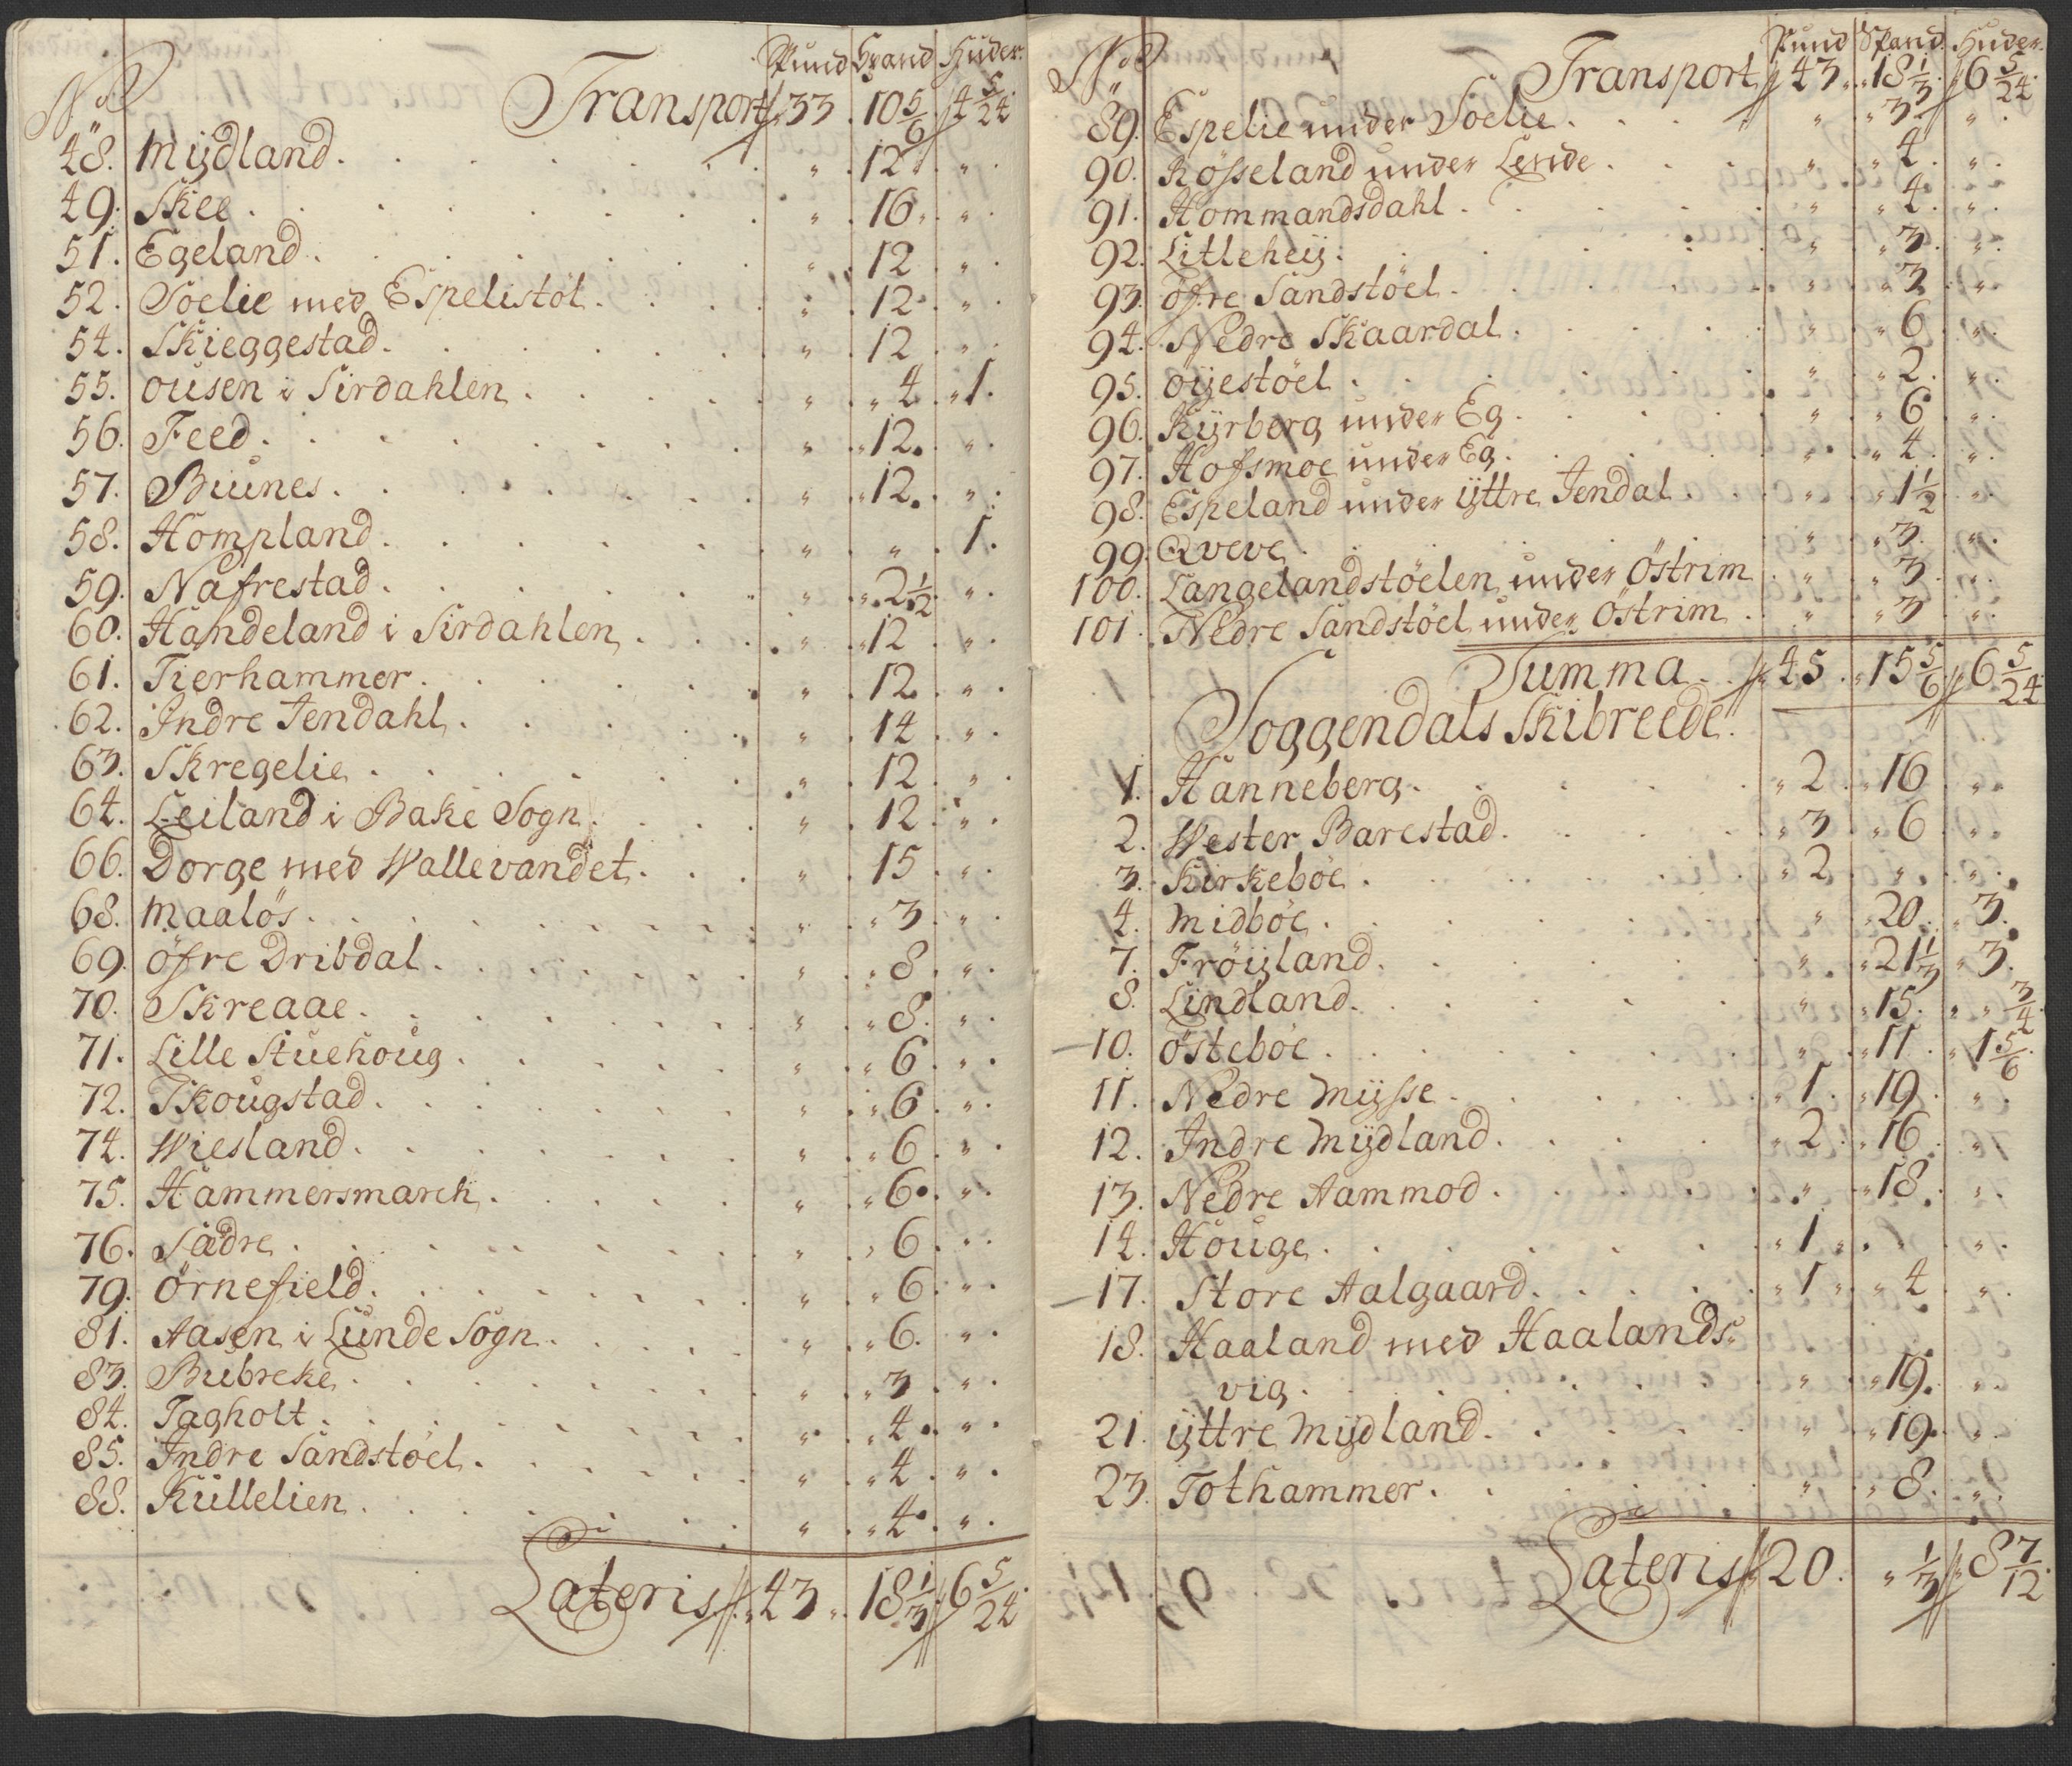 No Pund Spand Huder.
Transport 33 . 10 5/6 4 5/24
48. Mydland . . . " . 12 . " .
49. Skee . . . " . 16 . " .
51. Egeland . . . " . 12 . " .
52. Soelie med Espelistøl . . . " . 12 . " .
54. Skieggestad . . . " . 12 . " .
55. ousen i Sirdahlen . . . " . " 4 . " 1.
56. Feed . . . " . " 12 . " .
57. Buunes . . . " . " 12 . " .
58. Hompland . . . " . " . 1.
59. Nafrestad . . . " . " 2 1/2 " .
60. Handeland i Sirdahlen . . . " . " 12 . " .
61. Tierhammer . . . " . 12 . " .
62. Indre Jendahl . . . " . 14 . " .
63. Skregelie . . . " . 12 . " .
64. Leiland i Bake Sogn . . . " . 12 . " .
66. Dorge med Wallevandet . . . " . 15 . " .
68. Maaløs . . . " . " 3 . " .
69. øfre Dribdal . . . " . " 8 . " .
70. Skreaae . . . " . " 8 . " .
71. Lille Stuehoug . . . " . " 6 . " .
72. Skougstad . . . " . " 6 . " .
74. Wiesland . . . " . " 6 . " .
75. Hammersmarch . . . " . " 6 . " .
76. Sadre . . . " . " 6 . " .
79. Ørnefield . . . " . " 6 . " .
81. Aasen i Lunde Sogn . . . " . " 6 . " .
83. Bubreke . . . " . " 3 . " .
84. Tagholt . . . " . " 4 . " .
85. Indre Sandstøel . . . " . " 4 . " .
88. Kullelien . . . " . " 4 . " .
Lateris 43 . 18 1/3 6 5/24
No Pund Spand Huder.
Transport 43 . 18 1/3 6 5/24
89. Espelie under Soelie . . . " . " 3 . " .
90. Røsseland under Lende . . . " . " 4 . " .
91. Hommandsdahl . . . " . " 4 . " .
92. Litleheij . . . " . " 3 . " .
93. øfre Sandstøel . . . " . " 3 . " .
94. Nedre Skaardal . . . " . " 6 . " .
95. øijestøel . . . " . " 2 . " .
96. Kyrberg under Eg . . . " . " 6 . " .
97. Hofsmoe under Eg . . . " . " 4 . " .
98. Espeland under ijttre Jendal . . . " . " 1 1/2 . " .
99. Qveve . . . " . " 3 . " .
100. Langelandstøelen under Østrim . " . " 3 . " .
101. Nedre Sandstøel under Østrim . " . " 3 . " .
Summa . 45 . 15 5/6 6 5/24
Soggendals Skibreede.
1. Hanneberg . . . " 2 . 16 . " .
2. Wester Barestad . . . " 3 . " 6 . " .
3. Kirkebøe . . . " 2 . " . " .
4. Midbøe . . . " . " 20 . " 3.
7. Frøijland . . . " . " 21 1/3 " 3.
8. Lindland . . . " . " 15 . " 3/4
10. østebøe . . . " . " 11 . " 1 5/6
11. Nedre Mysse . . . " 1 . " 19 . " .
12. Indre Mydland . . . " 2 . " 16 . " .
13. Nedre Aammod . . . " . " 18 . " .
14. Houge . . . " 1 . " . " .
17. Store Aalgaard . . . " 1 . " 4 . " .
18. Haaland med Haalands-
vig . . . " . " 19 . " .
21. ijttre Mydland . . . " . " 19 . " .
23. Tothammer . . . " . " 8 . " .
Lateris 20 . " 1/3 8 7/12